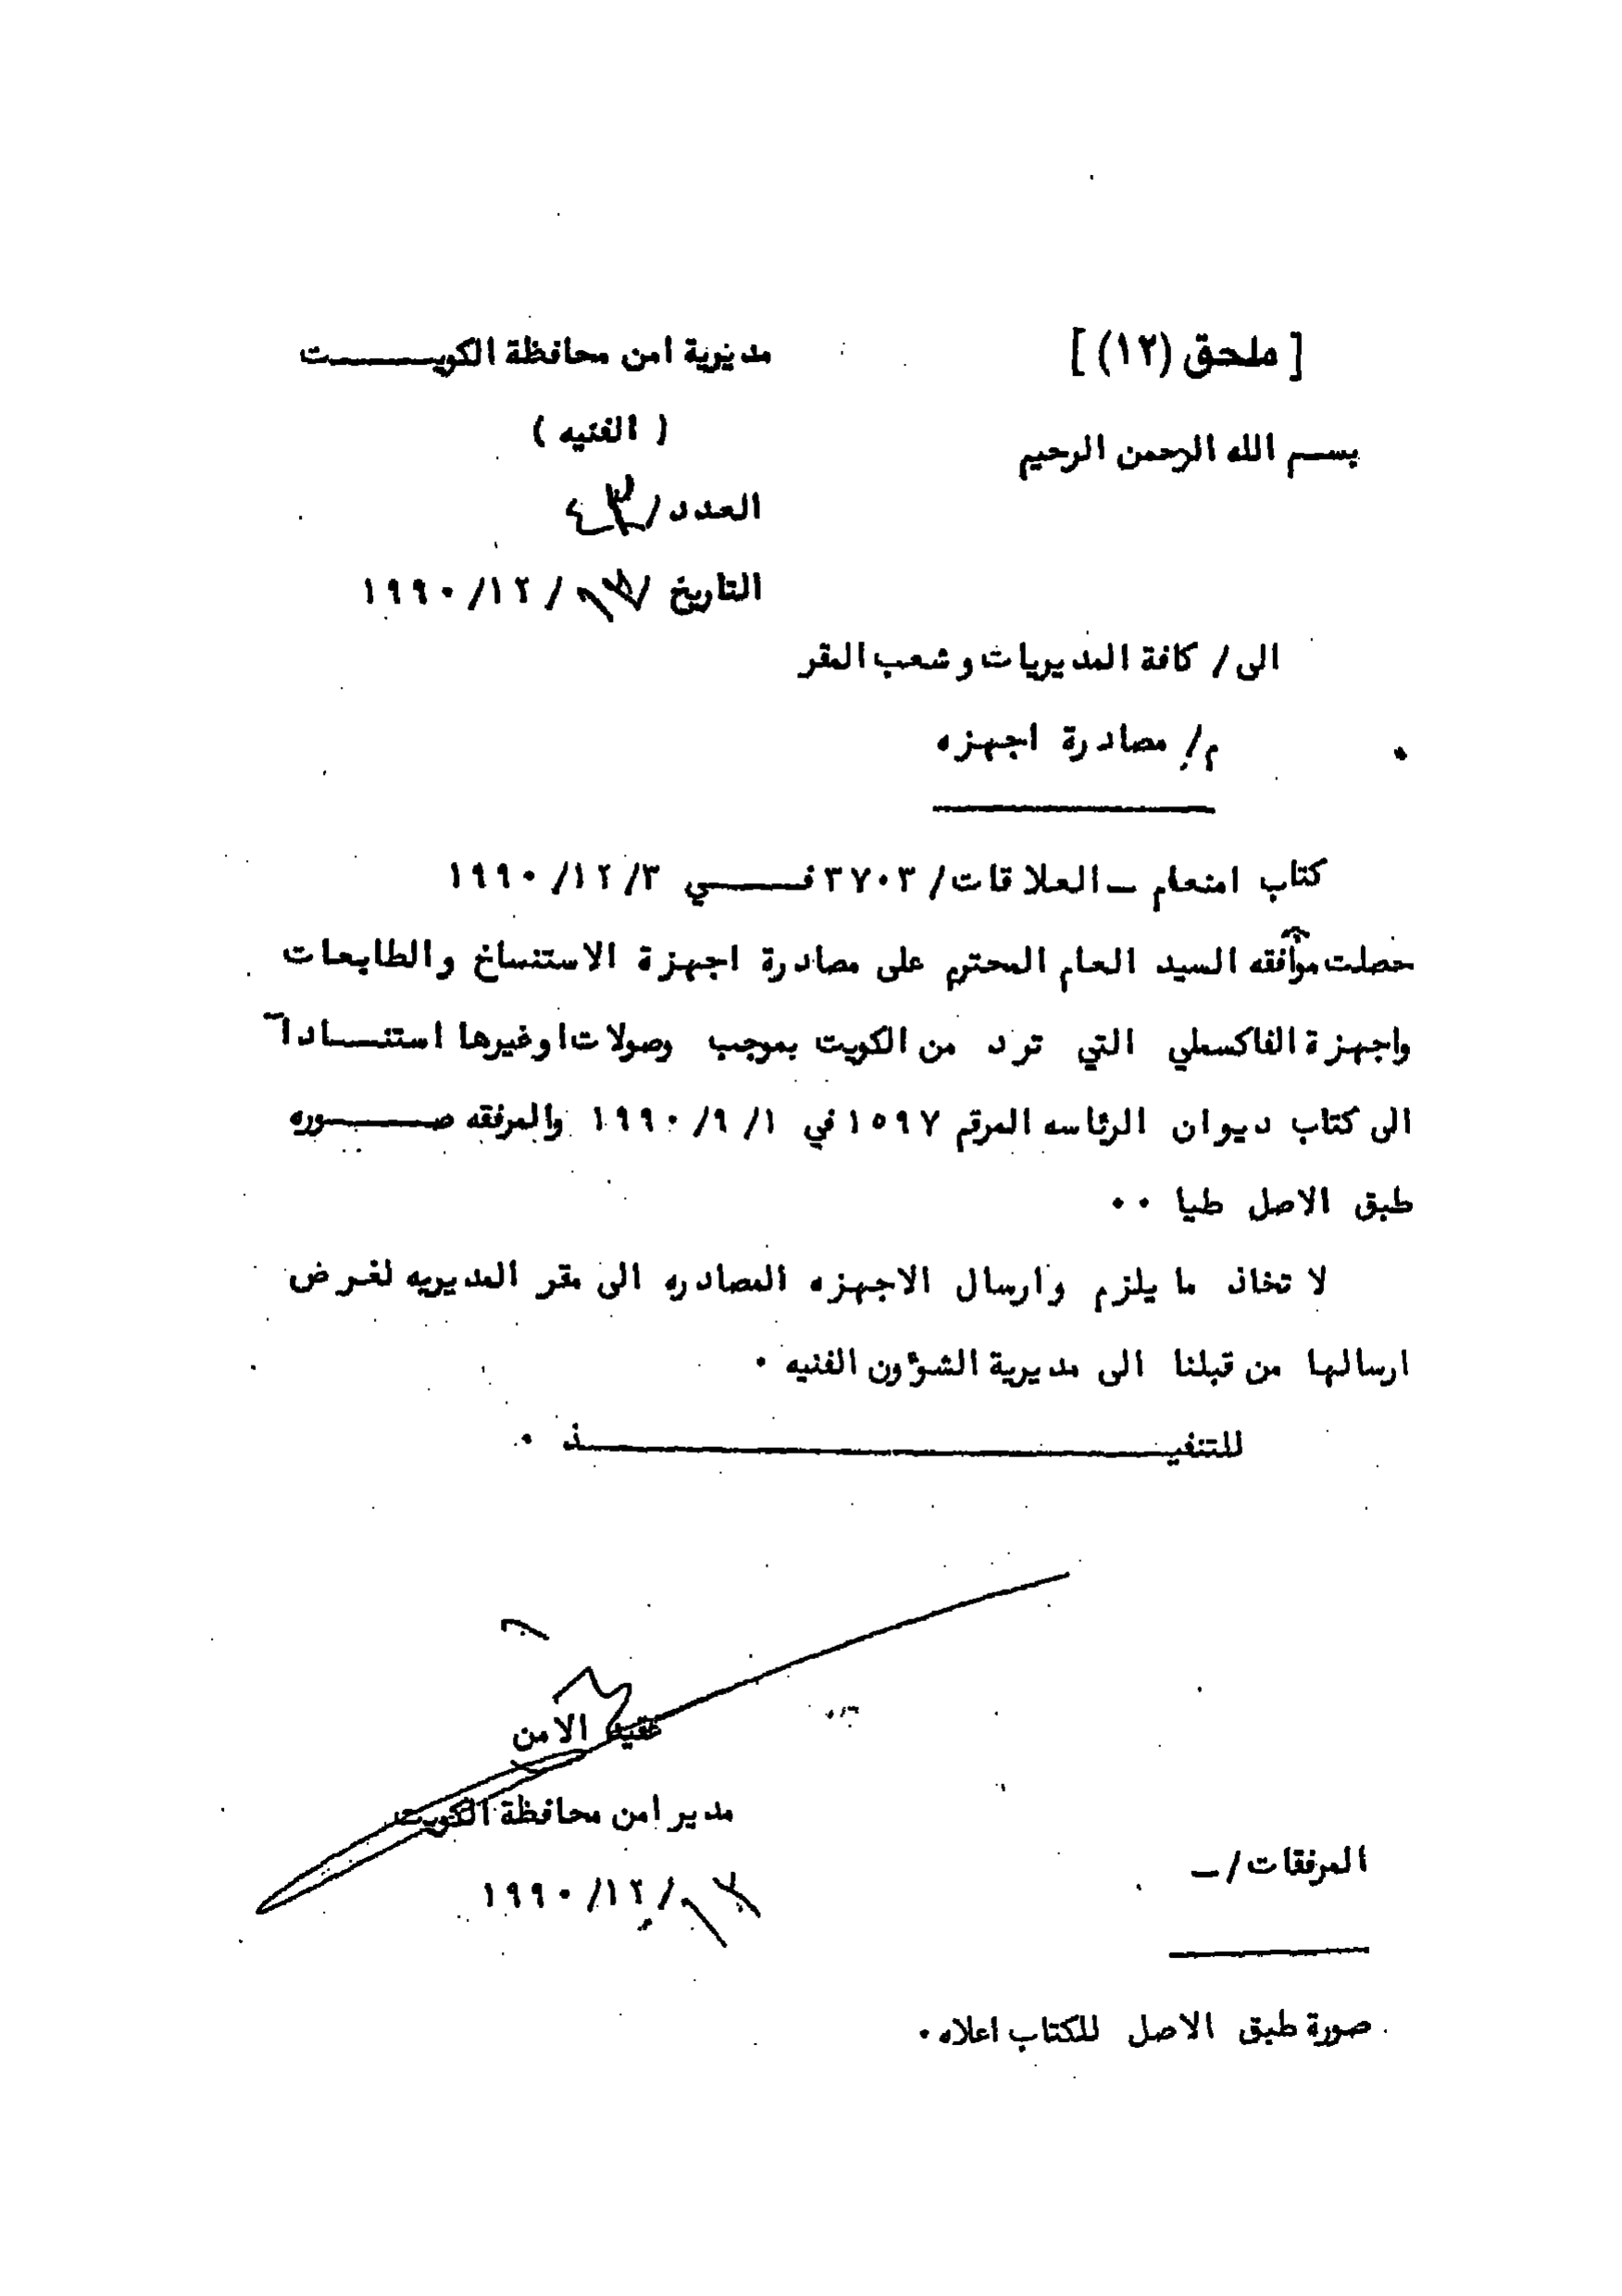 [ملحق (١٢)]
مديرية امن محافظة الكويـــــت
بسم الله الرحمن الرحيم
( الفنيه )
العدد /
التاريخ / / ١٢/ ١٩٩٠
الى / كافة المديريات و شعب المقر
م/ مصادرة اجهزه
كتاب امنعام ــ العلاقات / ٣٧٠٣ فـــــي ٣/ ١٢/ ١٩٩٠
حصلت موأفقه السيد العام المحترم على مصادرة اجهزة الاستنساخ والطابعات
واجهزة الفاكسملي التي ترد من الكويت بموجب وصولات اوغيرها استنـــادا
الى كتاب ديوان الرئاسه المرقم ١٥٩٧ في ١/ ٩/ ١٩٩٠ والمرفقه صـــــوره
طبق الاصل طيا ٠٠
لا تخاذ ما يلزم وارسال الاجهزه المصادره الى مقر المديريه لغرض
ارسالها من قبلنا الى مديرية الشؤون الفنيه ٠
للتنفيـــــــــــــــــــــذ ٠
عقيد الامن
مدير امن محافظة الكويت
/ ١٢/ ١٩٩٠
المرفقات / ــ
صورة طبق الاصل للكتاب اعلاه ٠